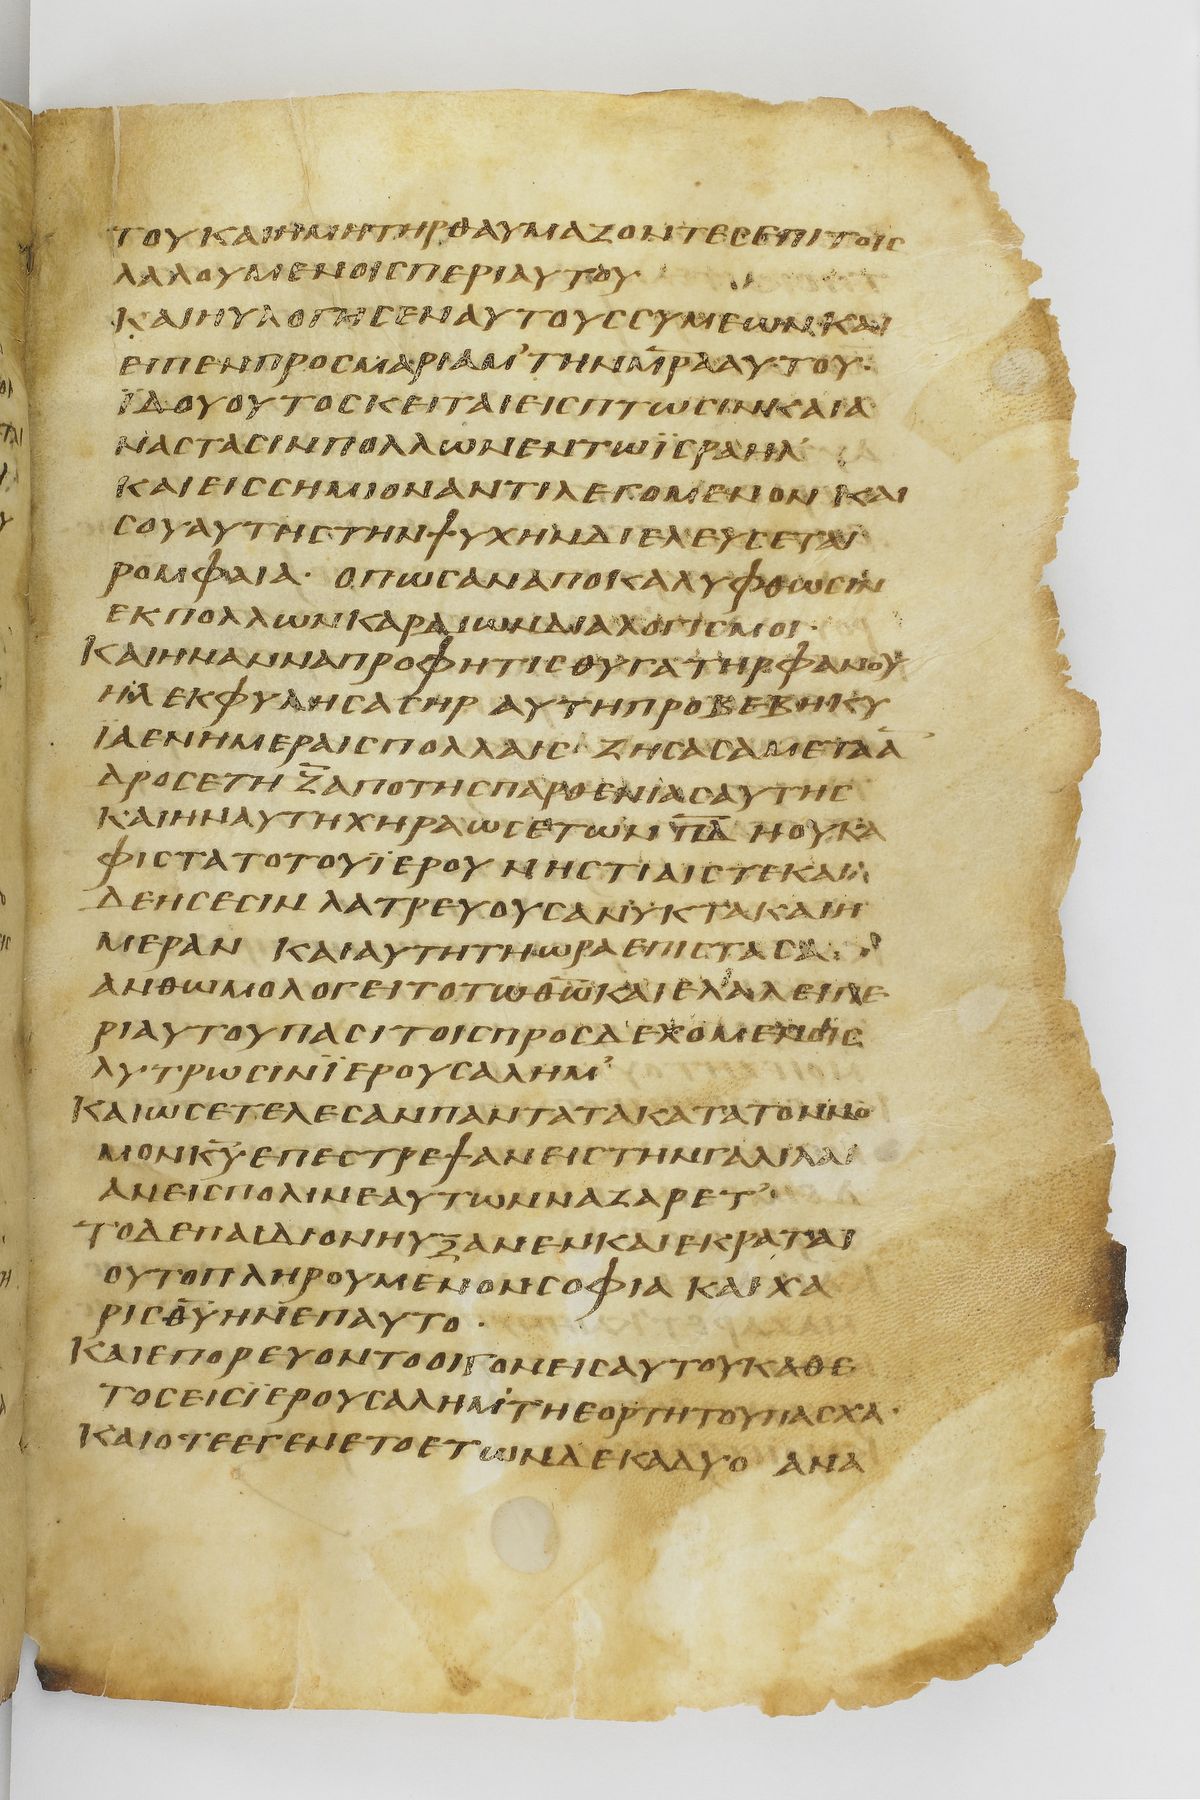 ΤΟΥΚΑΙΗΜΗΤΗΡΘΑΥΜΑΖΟΝΤΕCΕΠΙΤΟΙC
ΛΑΛΟΥΜΕΝΟΙCΠΕΡΙΑΥΤΟΥ
ΚΑΙΗΥΛΟΓΗCΕΝΑΥΤΟΥCCΥΜΕΩΝ·ΚΑΙ
ΕΙΠΕΝΠΡΟCΜΑΡΙΑΜ'ΤΗΝΜ̅Ρ̅ΑΑΥΤΟΥ·
ΪΔΟΥΟΥΤΟCΚΕΙΤΑΙΕΙCΠΤΩCΙΝΚΑΙΑ
ΝΑCΤΑCΙΝΠΟΛΛΩΝΕΝΤΩΪCΡΑΗΛ'
ΚΑΙΕΙCCΗΜΙΟΝΑΝΤΙΛΕΓΟΜΕΝΟΝ ΚΑΙ
CΟΥΑΥΤΗCΤΗΝΨΥΧΗΝΔΙΕΛΕΥCΕΤΑΙ
ΡΟΜΦΑΙΑ· ΟΠΩCΑΝΑΠΟΚΑΛΥΦΘΩCΙΝ
ΕΚΠΟΛΛΩΝΚΑΡΔΙΩΝΔΙΑΛΟΓΙCΜΟΙ·
ΚΑΙΗΝΑΝΝΑΠΡΟΦΗΤΙCΘΥΓΑΤΗΡΦΑΝΟΥ
ΗΛΕΚΦΥΛΗCΑCΗΡ ΑΥΤΗΠΡΟΒΕΒΗΚΥ
ΪΑΕΝΗΜΕΡΑΙCΠΟΛΛΑΙC ΖΗCΑCΑΜΕΤΑΑ̅
ΔΡΟCΕΤΗ Ζ̅ΑΠΟΤΗCΠΑΡΘΕΝΙΑCΑΥΤΗC
ΚΑΙΗΝΑΥΤΗΧΗΡΑΩCΕΤΩΝ Π̅Δ̅ ΗΟΥΚΑ
ΦΙCΤΑΤΟΤΟΥΪΕΡΟΥ ΝΗCΤΙΑΙCΤΕΚΑΙ
ΔΕΗCΕCΙΝ ΛΑΤΡΕΥΟΥCΑΝΥΚΤΑΚΑΙΗ
ΜΕΡΑΝ ΚΑΙΑΥΤΗΤΗΩΡΑΕΠΙCΤΑCΑ
ΑΝΘΩΜΟΛΟΓΕΙΤΟΤΩΘ̅Ω̅ΚΑΙΕΛΑΛΕΙΠΕ
ΡΙΑΥΤΟΥΠΑCΙΤΟΙCΠΡΟCΔΕΧΟΜΕΝΟΙC
ΛΥΤΡΩCΙΝΪΕΡΟΥCΑΛΗΜ'
ΚΑΙΩCΕΤΕΛΕCΑΝΠΑΝΤΑΤΑΚΑΤΑΤΟΝΝΟ
ΜΟΝΚ̅Υ̅·ΕΠΕCΤΡΕΨΑΝΕΙCΤΗΝΓΑΛΙΛΑΙ
ΑΝΕΙCΠΟΛΙΝΕΑΥΤΩΝΝΑΖΑΡΕΤ'·
ΤΟΔΕΠΑΙΔΙΟΝΗΥΞΑΝΕΝΚΑΙΕΚΡΑΤΑΙ
ΟΥΤΟΠΛΗΡΟΥΜΕΝΟΝCΟΦΙΑ ΚΑΙΧΑ
ΡΙCΘ̅Υ̅ΗΝΕΠΑΥΤΟ·
ΚΑΙΕΠΟΡΕΥΟΝΤΟΟΙΓΟΝΕΙCΑΥΤΟΥΚΑΘΕ
ΤΟCΕΙCΪΕΡΟΥCΑΛΗΜ'ΤΗΕΟΡΤΗΤΟΥΠΑCΧΑ·
ΚΑΙΟΤΕΕΓΕΝΕΤΟΕΤΩΝΔΕΚΑΔΥΟ ΑΝΑ